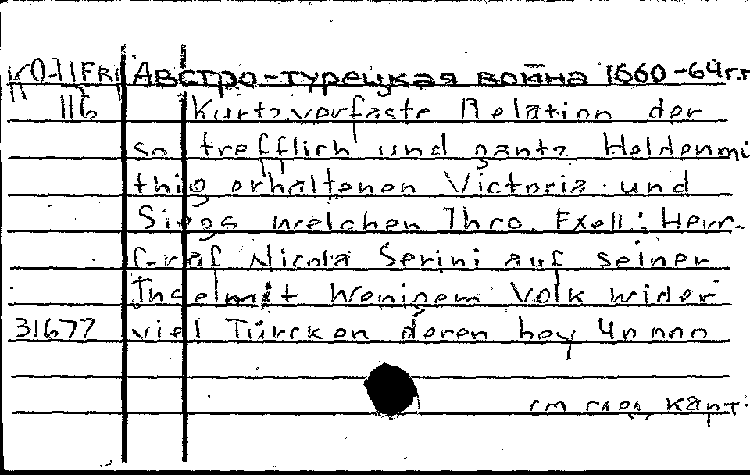 КО-11FRI Австро-турецкая война 1660-64г.г
116 Kurtzverfaste Relation der
so trefflich und gantz Heldenmü
thig erhaltenen Victoria und
Siegs welchen Ihro. Exell: Herr-
Graf Nicola Serini auf seiner
Insel mit Wenigem Volk wider
31677 viel Türcken deren bey 40000
см след. карт.